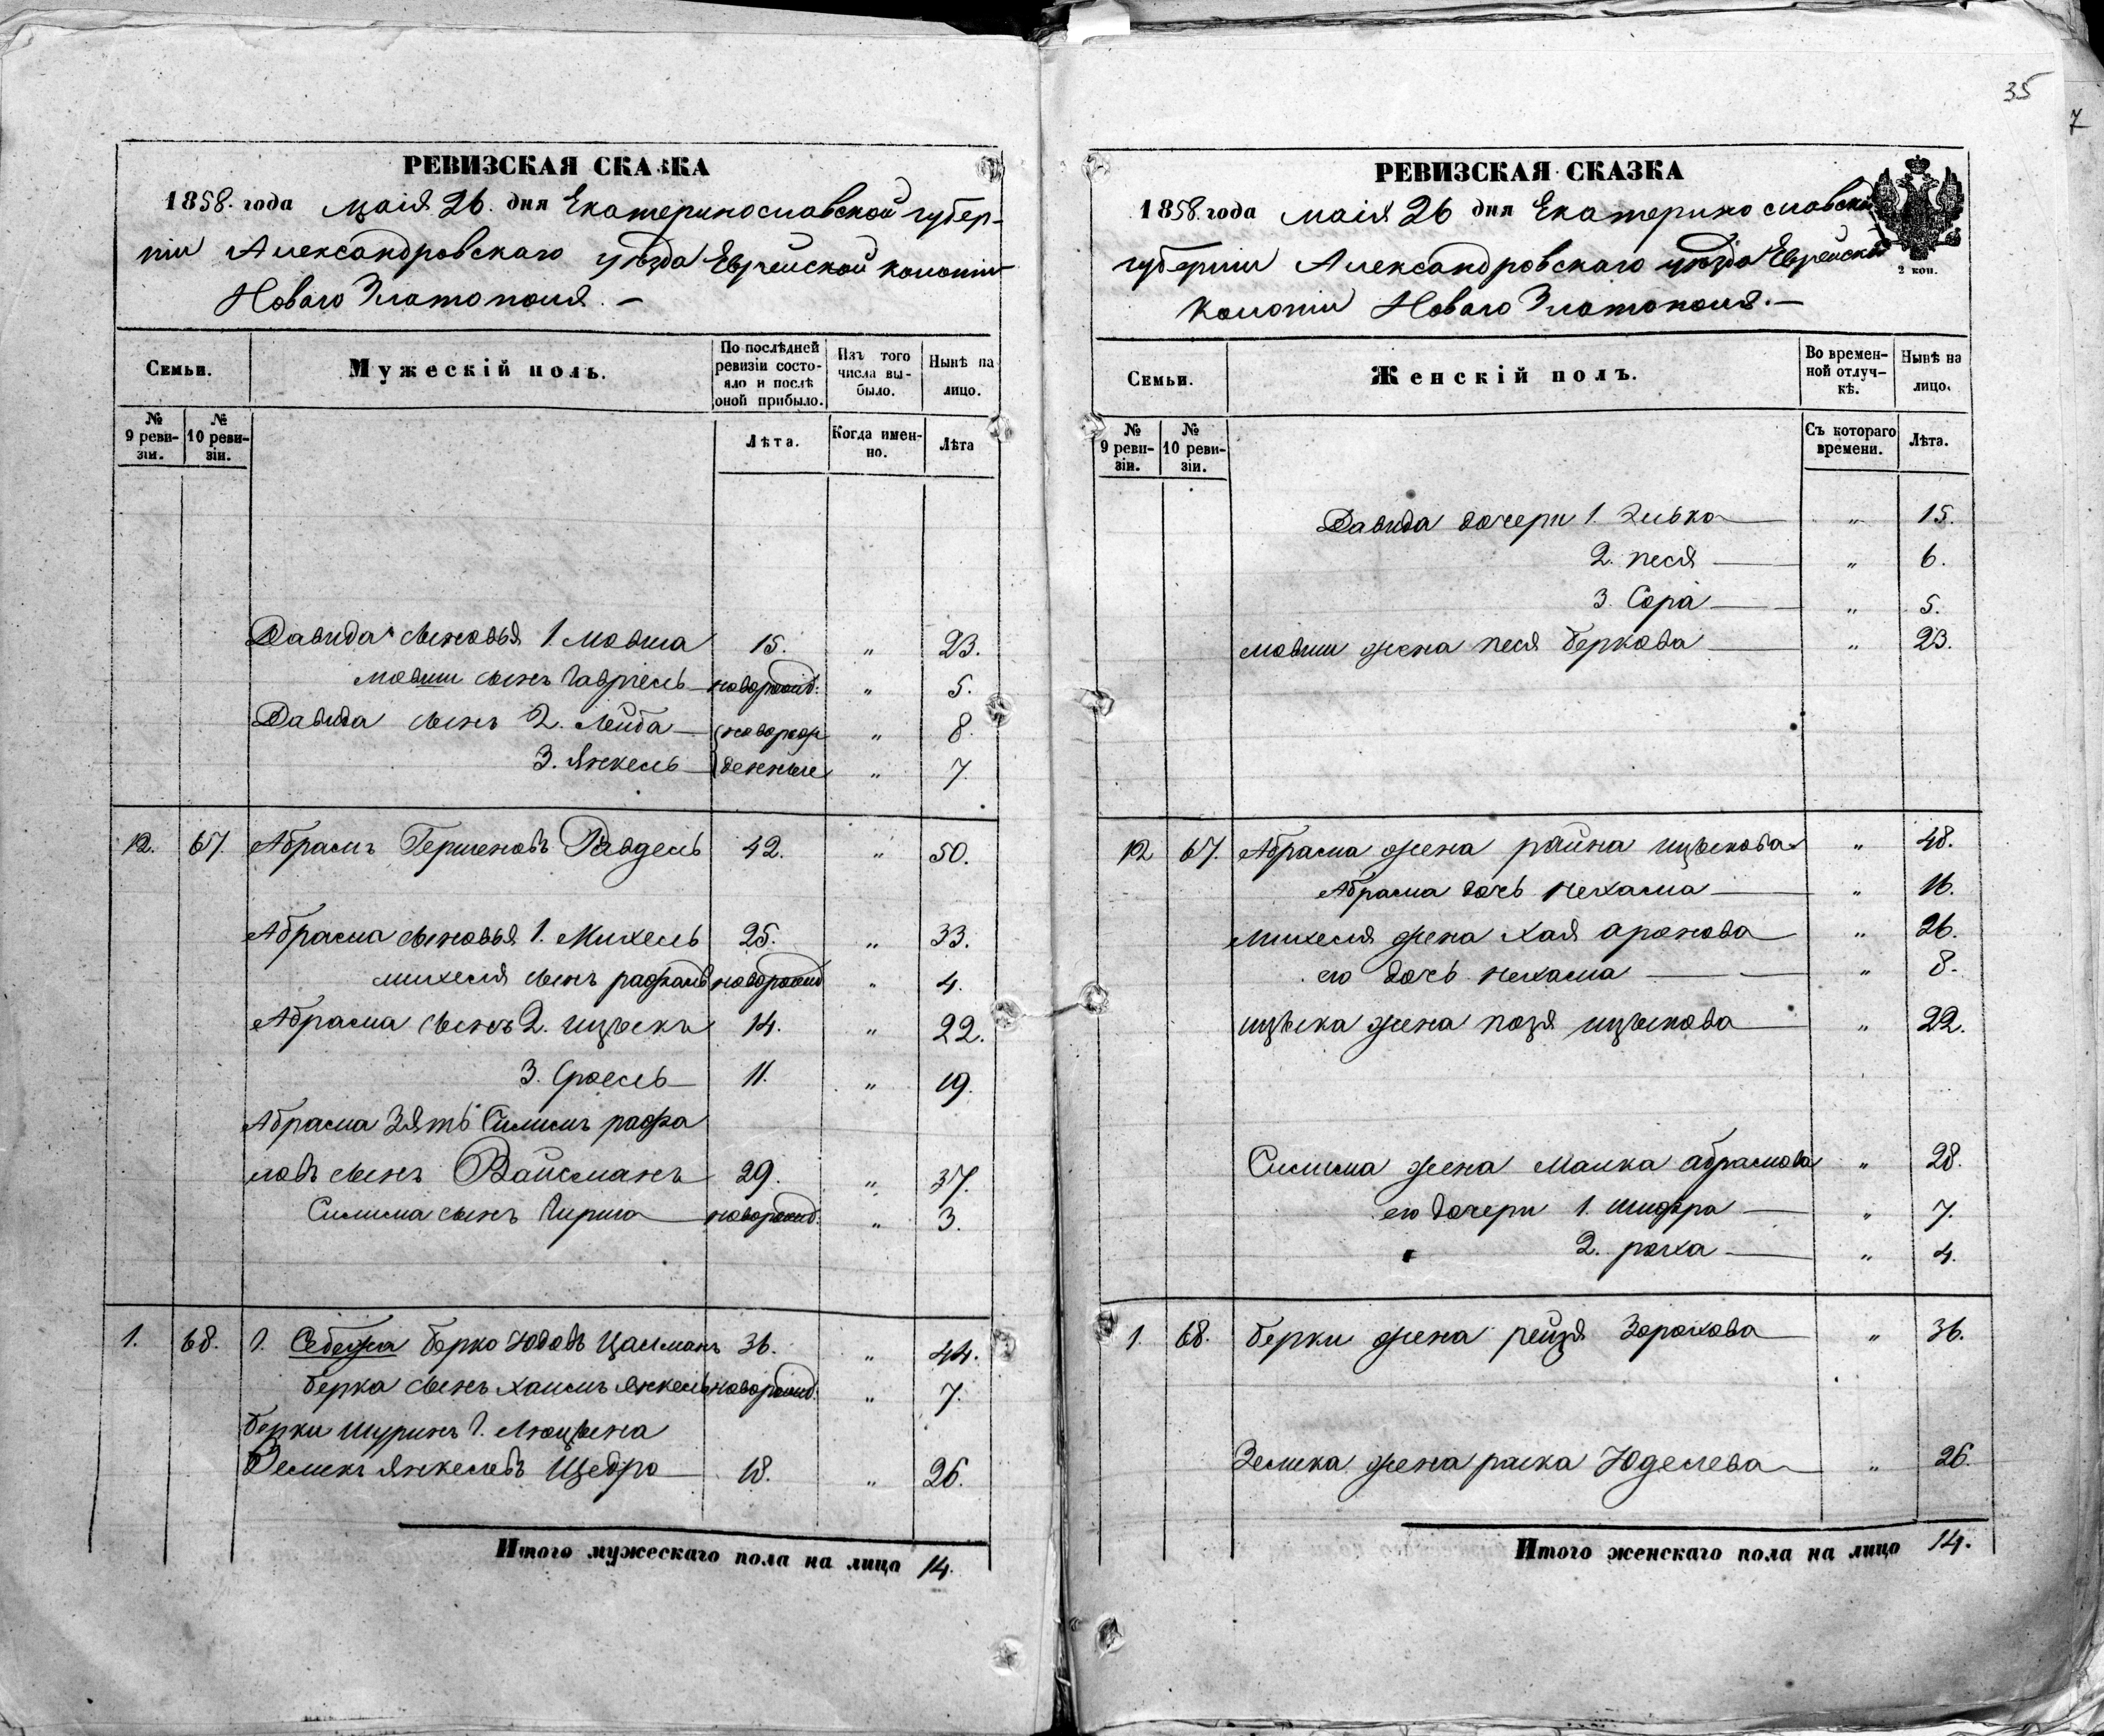 35
7
РЕВИЗСКАЯ СКАЗКА
1858. года маія 26. дня Екатеринославской губер-
ніи Александровскаго уѣзда Еврейской колоніи
Новаго Златополя. –
Семьи.
Мужескій полъ.
По послѣдней ревизіи состояло и послѣ оной прибыло.
Изъ того числа выбыло.
Нынѣ на лицо.
№ 9 ревизіи.
№ 10 ревизіи.
Лѣта.
Когда именно.
Лѣта
Давида сыновья 1. Мовша 15. " 23.
Мовши сынъ Гавріель новорожд: " 5.
Давида сынъ 2. Лейба новорож " 8.
3. Янкель денные " 7.
12. 67. Абрамъ Гершеновъ 42. " 50.
Абрама сыновья 1. Михель 25. " 33.
Михеля сынъ новорожд " 4.
Абрама сынъ 2. Ицъекъ 14. " 22.
3. Сроель 11. " 19.
Абрама Зять Симимъ рафа
ловъ сынъ Вайсманъ 29. " 37.
Симима сынъ Гирша новорожд: " 3.
1. 68. Себежа Берко Юдовъ Цалманъ 36. " 44.
Берка сынъ Хаимъ Янкель новорожд: " 7.
Берки Шуринъ Г. Люцына
Земикъ Янкелевъ Щедро 18. " 26.
Итого мужескаго пола на лицо 14.
РЕВИЗСКАЯ СКАЗКА
1858. года маія 26 дня Екатеринославской
губерніи Александровскаго уѣзда Еврейской
Колоніи Новаго Златополя. –
2 коп.
Семьи.
Женскій полъ.
Во временной отлучкѣ.
Нынѣ на лицо.
№ 9 ревизіи.
№ 10 ревизіи.
Съ котораго времени.
Лѣта.
Давида дочери 1. Зивка " 15.
2. Песя " 6.
3. Сора " 5.
Мовши жена Песя Беркова " 23.
12 67. Абрама жена Райна Ицъекова " 48.
Абрама дочь Нехама " 16.
Михеля жена Хая Аронова " 26.
его дочь Нехама " 8.
Ицъека жена Позя Ицъекова " 22.
Симима жена Малка Абрамова " 28.
его дочери 1. Шифра " 7.
2. Роха " 4.
1. 68. Берки жена Рейзя Зорохова " 36.
Земика жена Раска Юделева " 26.
Итого женскаго пола на лицо 14.